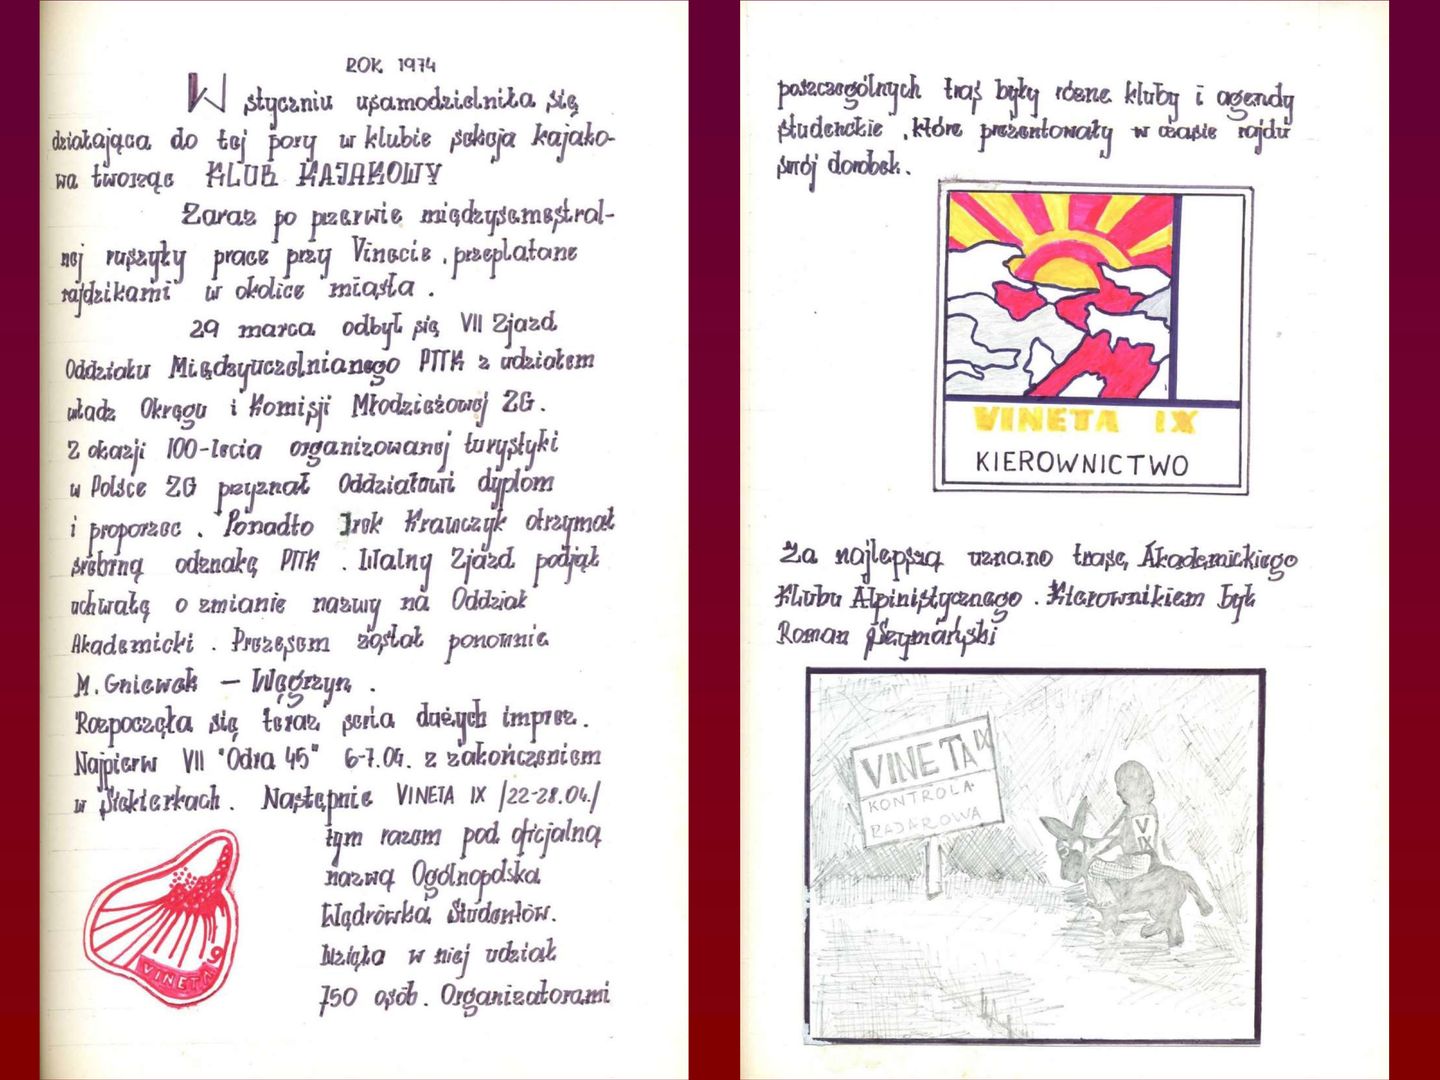 ROK 1974
W styczniu usamodzielniła się
działająca do tej pory w klubie sekcja kajako-
wa tworząc KLUB KAJAKOWY
Zaraz po przerwie międzysemestral-
nej ruszyły prace przy Vinecie, przeplatane
rajdzikami w okolice miasta.
29 marca odbył się VII Zjazd
Oddziału Międzyuczelnianego PTTK z udziałem
władz Okręgu i Komisji Młodzieżowej ZG.
Z okazji 100-lecia organizowanej turystyki
w Polsce ZG przyznał Oddziałowi dyplom
i proporzec. Ponadto Irek Krawczyk otrzymał
srebrną odznakę PTTK. Walny Zjazd podjął
uchwałę o zmianie nazwy na Oddział
Akademicki. Prezesem został ponownie
M. Gniewek – Węgrzyn.
Rozpoczęła się teraz seria dużych imprez.
Najpierw VII "Odra 45" 6-7.04. z zakończeniem
w Siekierkach. Następnie VINETA IX /22-28.04./
tym razem pod oficjalną
nazwą Ogólnopolska
Wędrówka Studentów.
Wzięło w niej udział
750 osób. Organizatorami
VINETA 9
poszczególnych tras były różne kluby i agendy
studenckie, które prezentowały w czasie rajdu
swój dorobek.
VINETA IX
KIEROWNICTWO
Za najlepszą uznano trasę Akademickiego
Klubu Alpinistycznego. Kierownikiem był
Roman Szymański
VINETA IX
KONTROLA
RADAROWA
V
IX